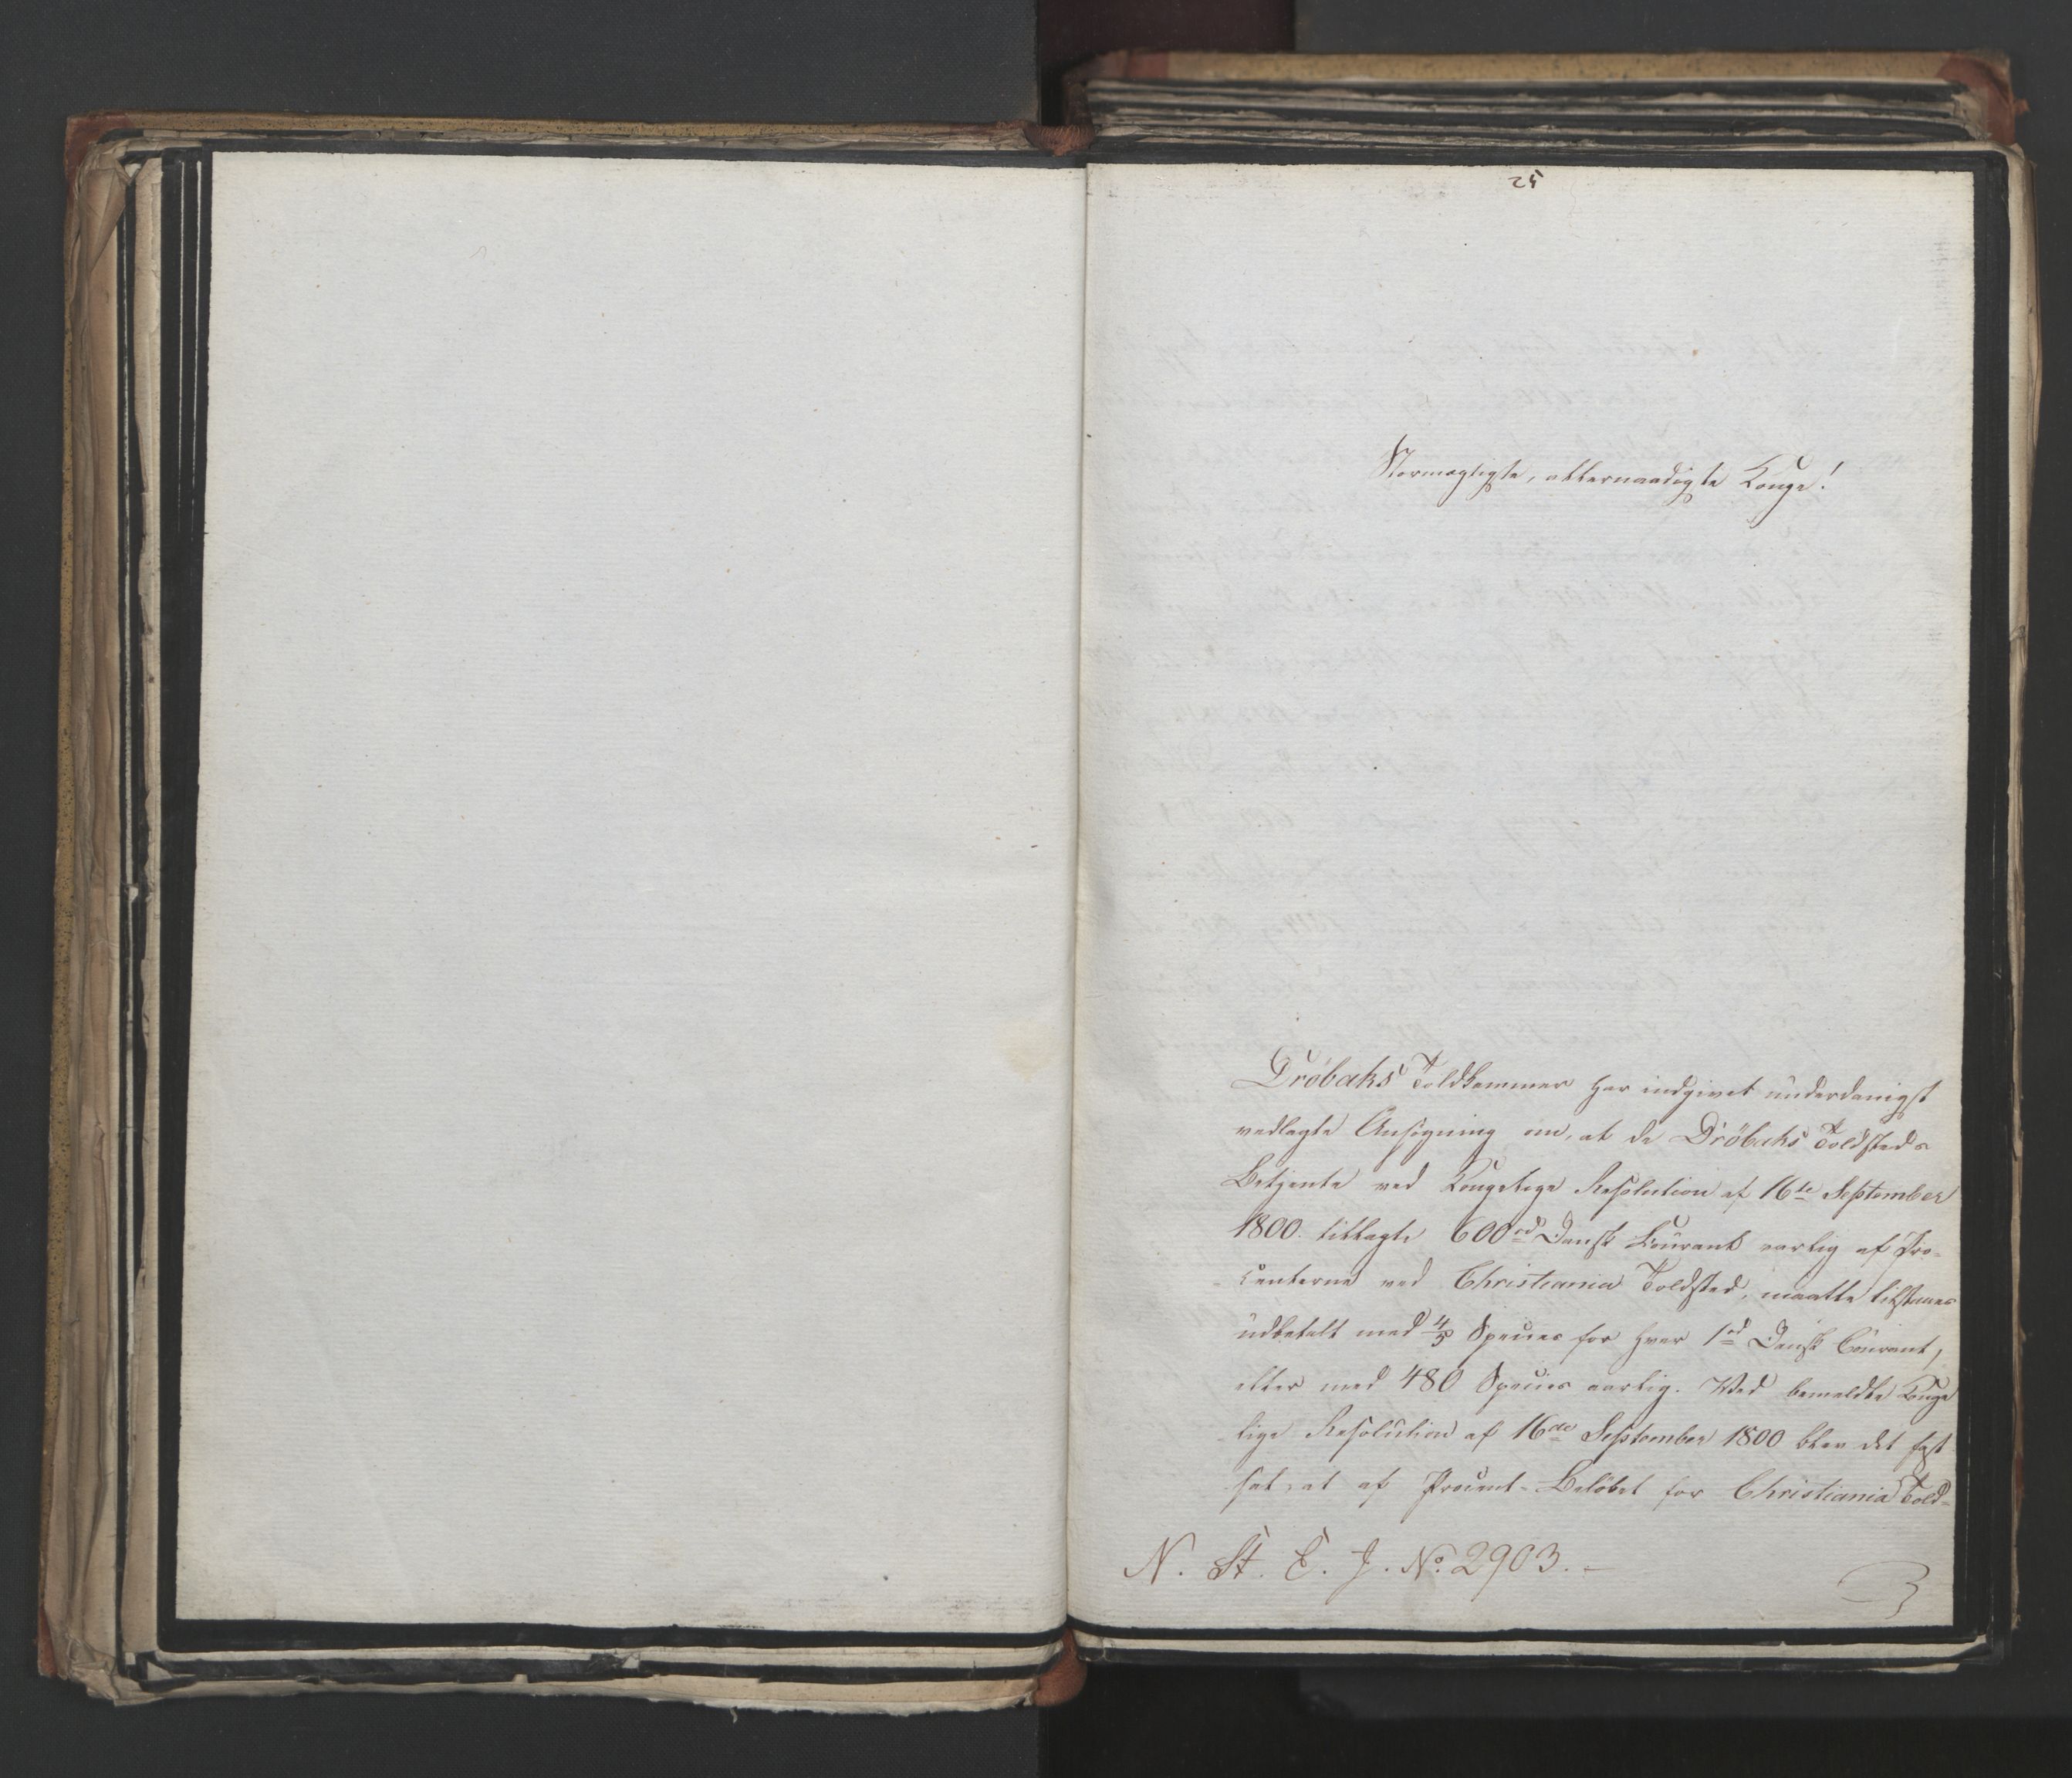 25
Stormægtigste, allernaadigste Konge!
Dröbaks Toldkammer har indgivet underdanigst
vedlagte Ansøgning om, at de Dröbaks Toldsteds
Betjente ved Kongelige Resolution af 16te September
1800. tillagte 600 rd Dansk Courant aarlig af Pro-
centerne ved Christiania Toldsted, maatte tilstaaes
udbetalt med 4/5 Species for hver 1 rd Dansk Courant,
eller med 480 Species aarlig. Ved bemeldte Konge
lige Resolution af 16de September 1800 blev det fast
sat, at af Procent-Beløbet for Christiania Told-
N. St. E. J. No. 2903. -